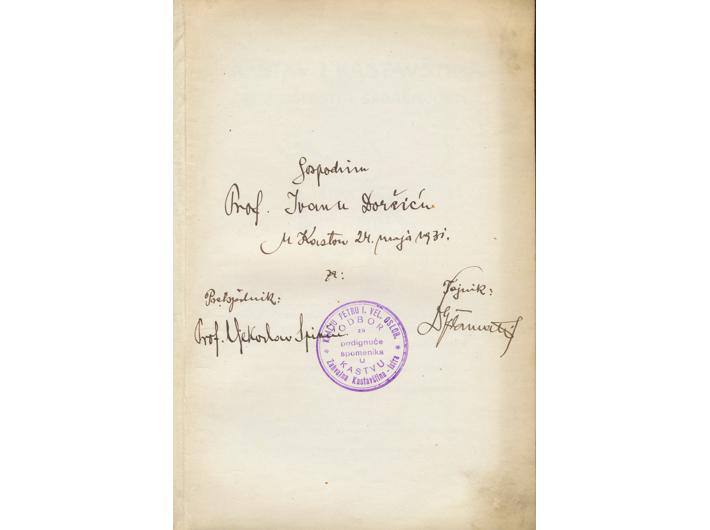 Gospodinu
Prof. Ivanu
U Kastvu 24. maja 1931.
za:
Predsjednik:
Tajnik:
Prof. Vjekoslav Spinčić
KRALJU PETRU I. VEL. OSLOB.
ODBOR
za
podignuće
spomenika
U
KASTVU
Zahvalna Kastavština - Istra